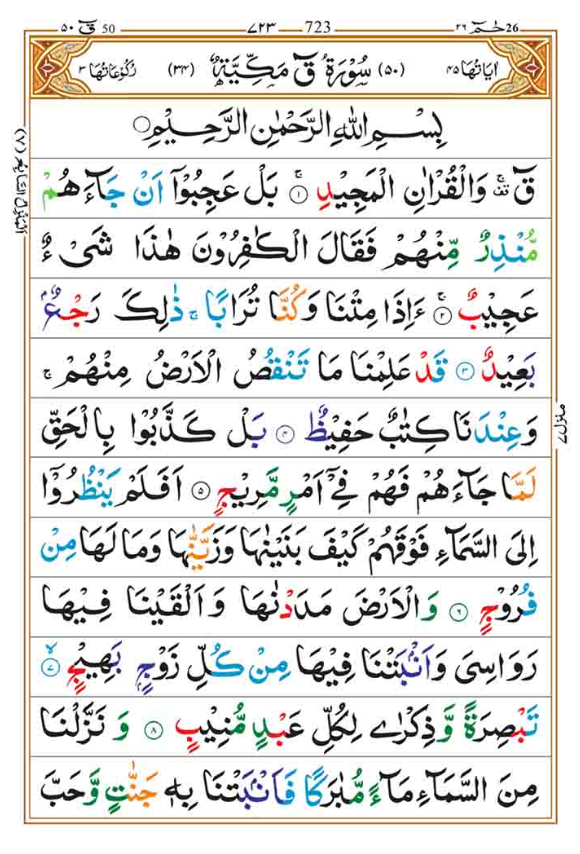 50 قٓ ۵۰
۷۲۳ 723
حٰمٓ 26 ۲۶
اٰيَاتُهَا ۴۵ (۵۰) سُوْرَةُ قٓ مَكِّيَّةٌ (۳۴) رُكُوْعَاتُهَا ۳
بِسْمِ اللهِ الرَّحْمٰنِ الرَّحِيْمِ
قٓ ۚ وَالْقُرْاٰنِ الْمَجِيْدِ ۱ بَلْ عَجِبُوْۤا اَنْ جَآءَهُمْ
مُّنْذِرٌ مِّنْهُمْ فَقَالَ الْكٰفِرُوْنَ هٰذَا شَىْءٌ
عَجِيْبٌ ۲ ءَاِذَا مِتْنَا وَكُنَّا تُرَابًا ۚ ذٰلِكَ رَجْعٌۢ
بَعِيْدٌ ۳ قَدْ عَلِمْنَا مَا تَنْقُصُ الْاَرْضُ مِنْهُمْ ۚ
وَعِنْدَنَا كِتٰبٌ حَفِيْظٌ ۴ بَلْ كَذَّبُوْا بِالْحَقِّ
لَمَّا جَآءَهُمْ فَهُمْ فِيْۤ اَمْرٍ مَّرِيْجٍ ۵ اَفَلَمْ يَنْظُرُوْۤا
اِلَى السَّمَآءِ فَوْقَهُمْ كَيْفَ بَنَيْنٰهَا وَزَيَّنّٰهَا وَمَا لَهَا مِنْ
فُرُوْجٍ ۶ وَالْاَرْضَ مَدَدْنٰهَا وَاَلْقَيْنَا فِيْهَا
رَوَاسِىَ وَاَنْۢبَتْنَا فِيْهَا مِنْ كُلِّ زَوْجٍۢ بَهِيْجٍ ۷
تَبْصِرَةً وَّذِكْرٰى لِكُلِّ عَبْدٍ مُّنِيْبٍ ۸ وَنَزَّلْنَا
مِنَ السَّمَآءِ مَآءً مُّبٰرَكًا فَاَنْۢبَتْنَا بِهٖ جَنّٰتٍ وَّحَبَّ
اَلْمَنْزِلُ السَّابِعُ (۷)
منزل ۷